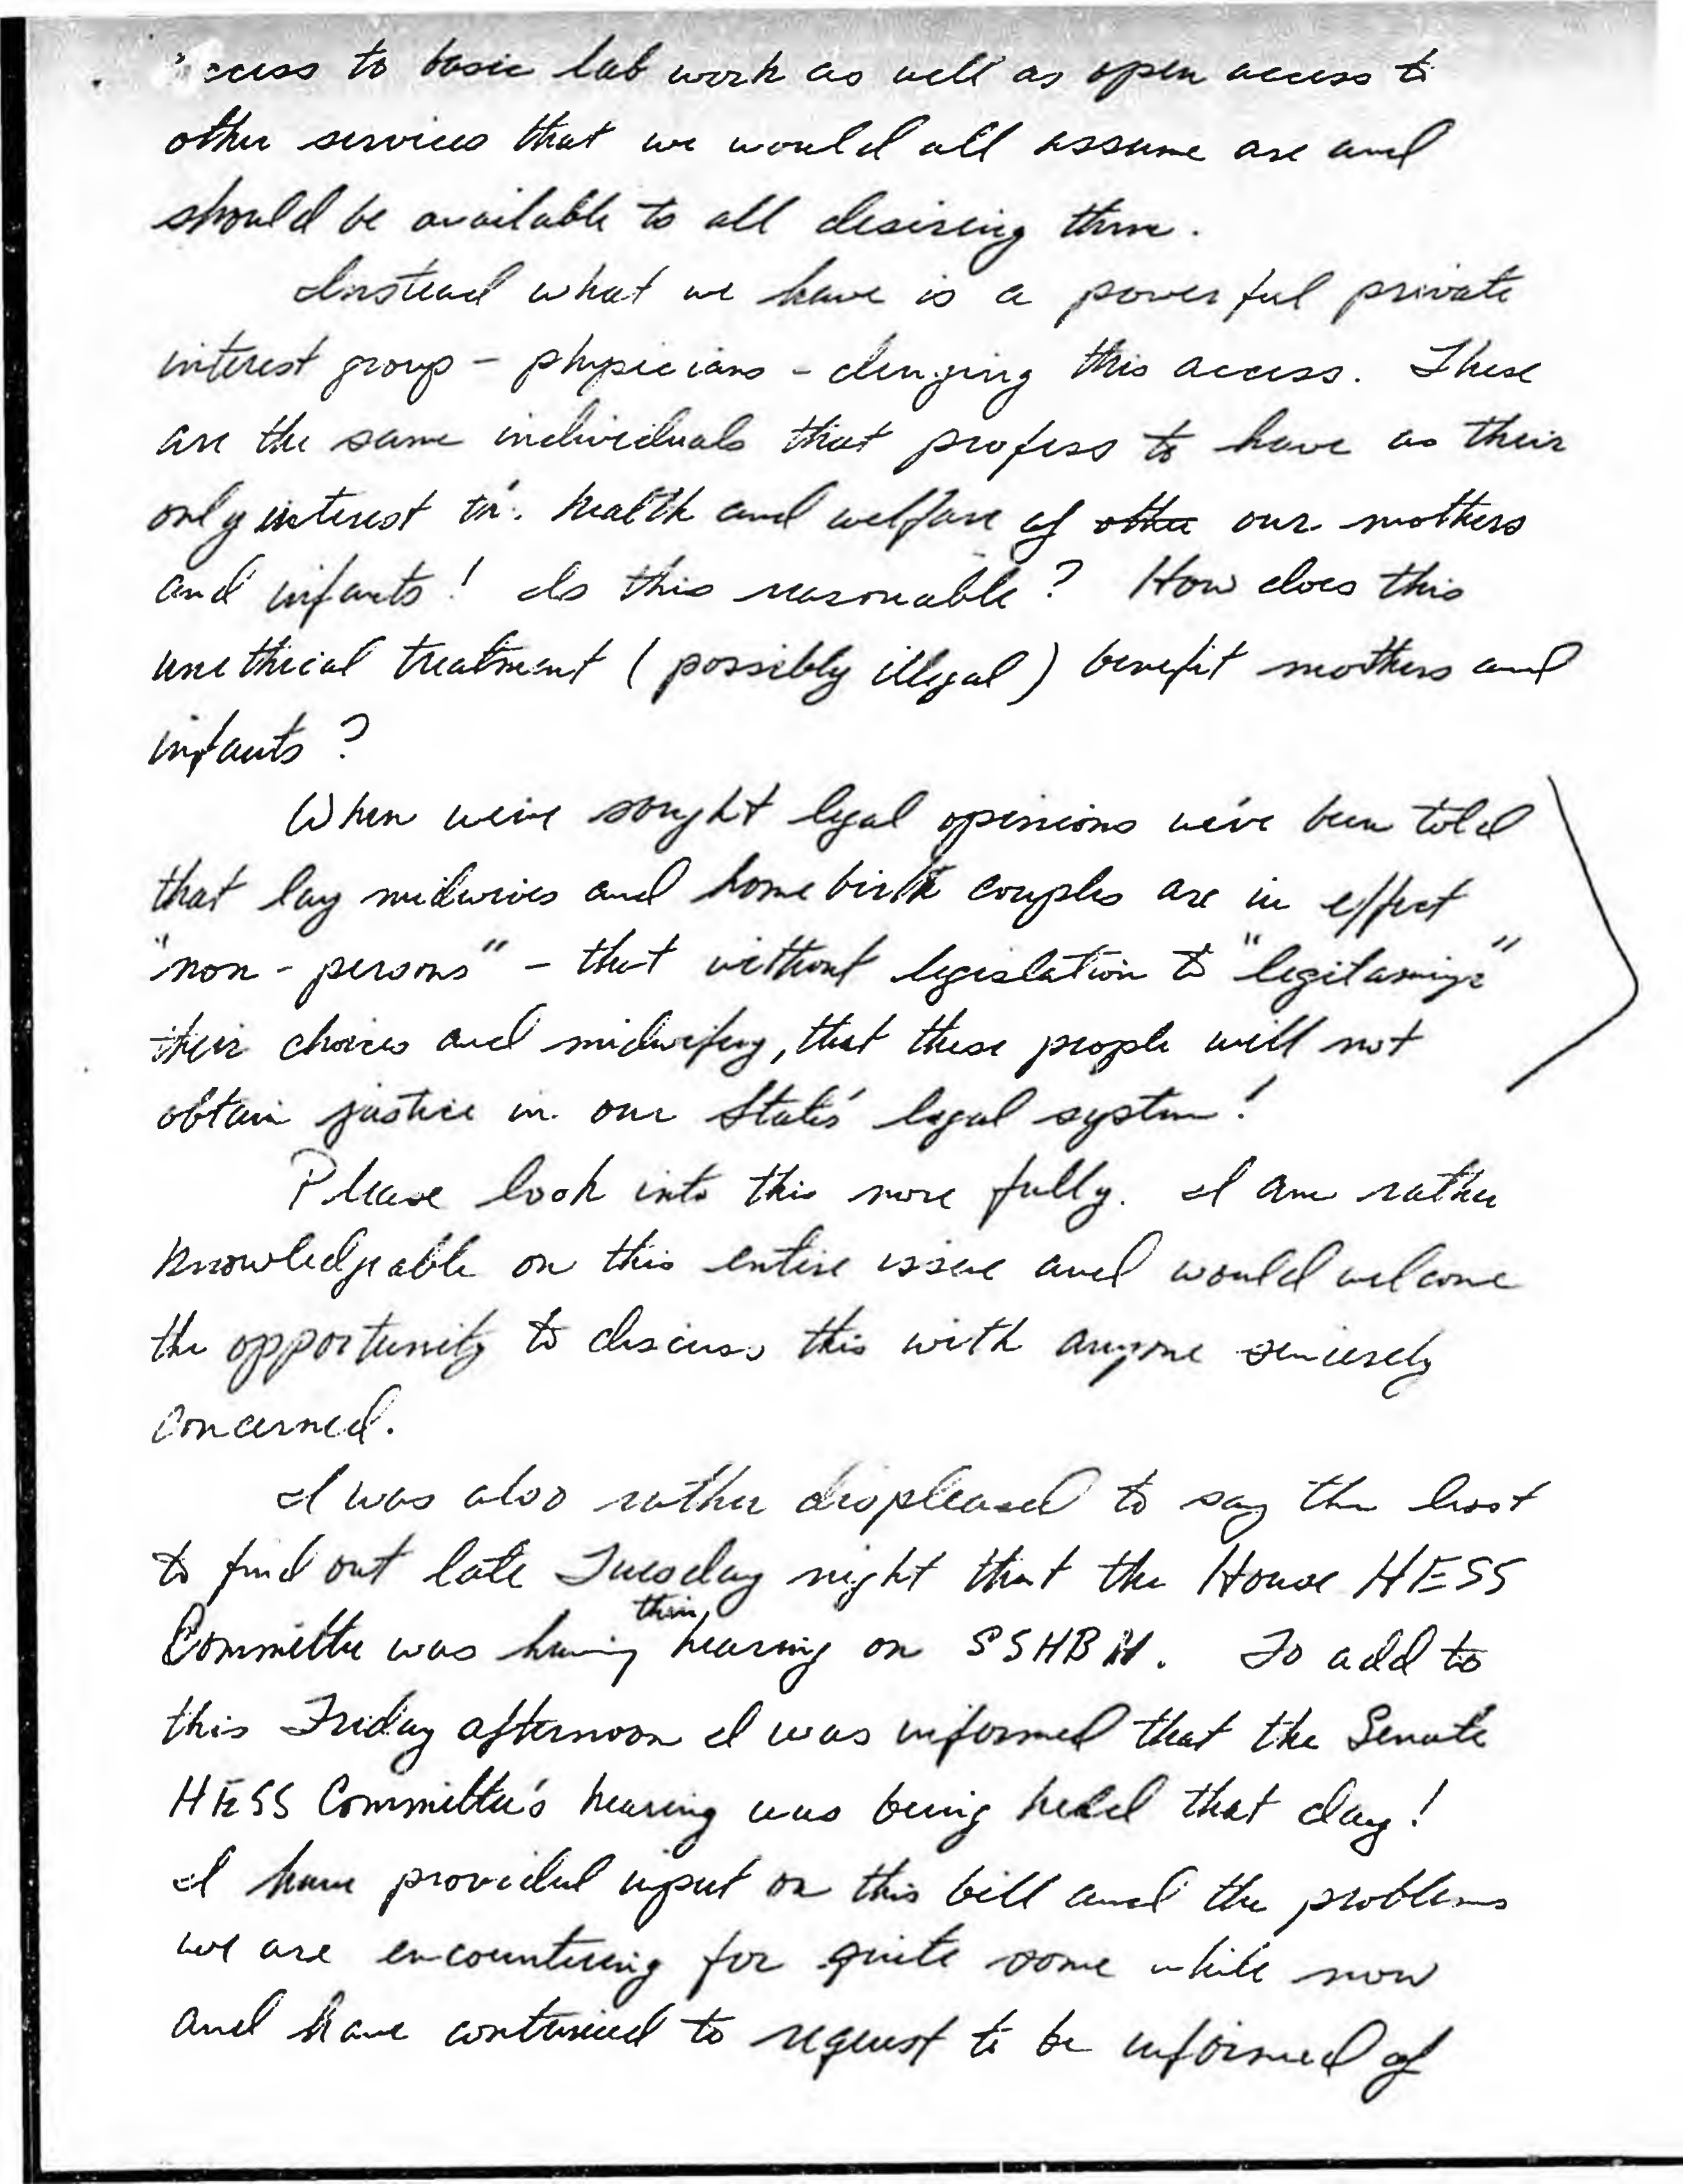 access to basic lab work as well as open access to
other services that we would all assume are and
should be available to all desiring them.
Instead what we have is a powerful private
interest group - physicians - denying this access. These
are the same individuals that profess to have as their
only interest the health and welfare of other our mothers
and infants! Is this reasonable? How does this
unethical treatment (possibly illegal) benefit mothers and
infants?
When we've sought legal opinions we've been told
that lay midwives and home birth couples are in effect
"non-persons" - that without legislation to "legitamize"
their choices and midwifery, that these people will not
obtain justice in our State's legal system!
Please look into this more fully. I am rather
knowledgeable on this entire issue and would welcome
the opportunity to discuss this with anyone sincerely
concerned.
I was also rather displeased to say the least
to find out late Tuesday night that the House HESS
Committee was having their hearing on SSHB. To add to
this Friday afternoon I was informed that the Senate
HESS Committee's hearing was being held that day!
I have provided input on this bill and the problems
we are encountering for quite some while now
and have continued to request to be informed of